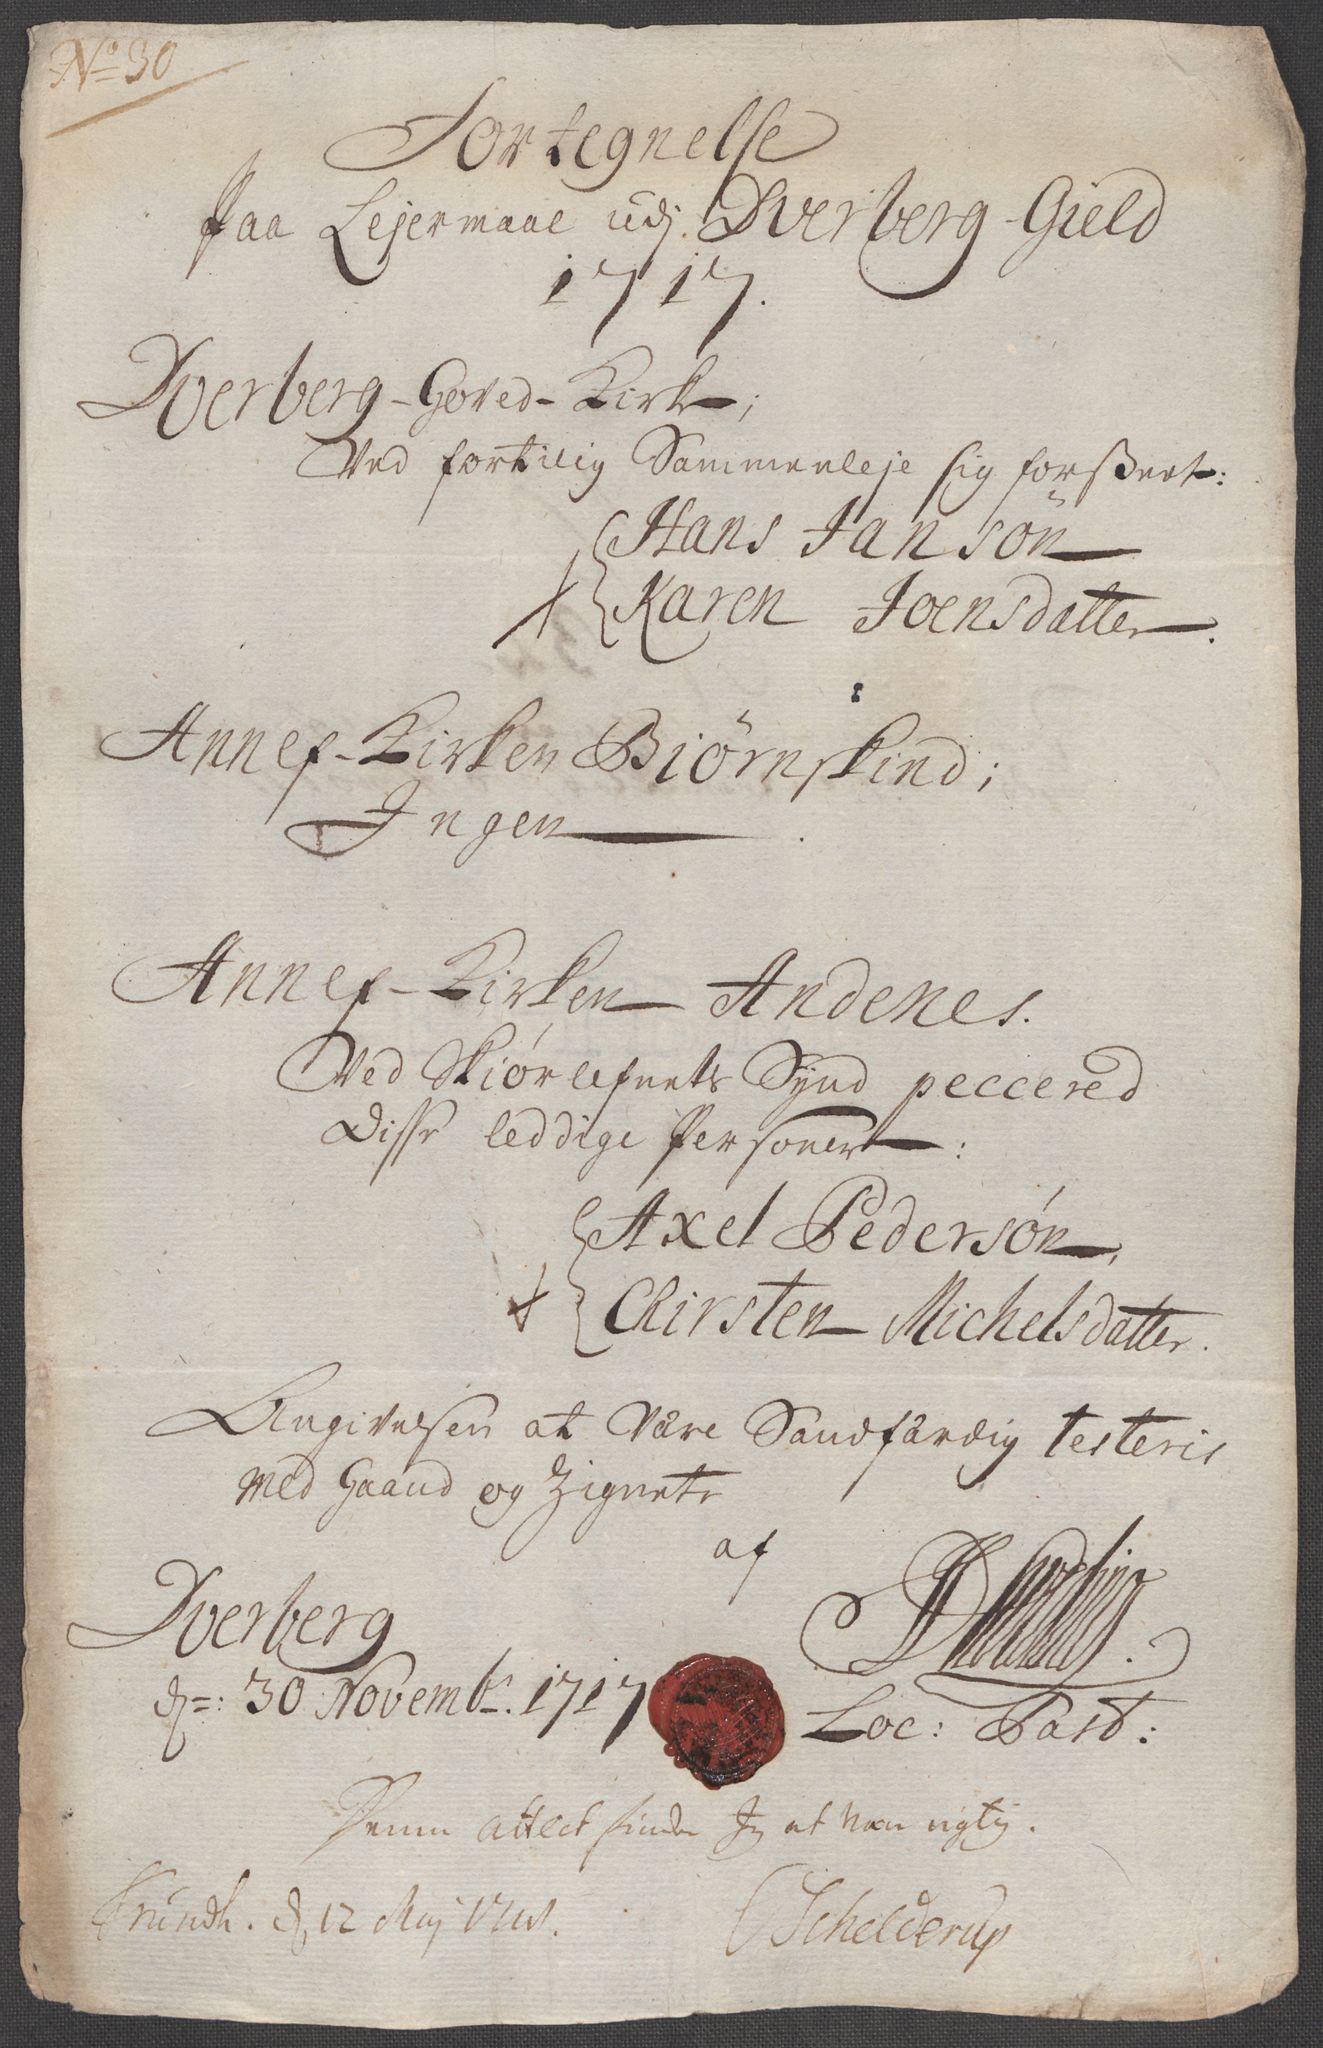 No 30
Fortegnelse
paa Lejermaal udj Dverberg-Gield
1717.
Dverberg-Hoved-Kirke;
Ved fortilig Sammenleje sig forseet:
Hans Jansøn
Karen Joensdatter.
Annex-Kirken Biørnskind;
Ingen
Annex-Kirken Andenes.
Ved Skiørlefnets Synd peccered
disse leddige Personer:
Axel Pedersøn,
Chirsten Michelsdatter.
Angivelsen at være Sandfärdig testeris
med Haand og Zignete
af
Dverberg
d: 30 Novembr. 1717
Loc: Past:
Denne attest finder Jeg at være rigtig.
Trundh. d 12 Maj
Schelderup